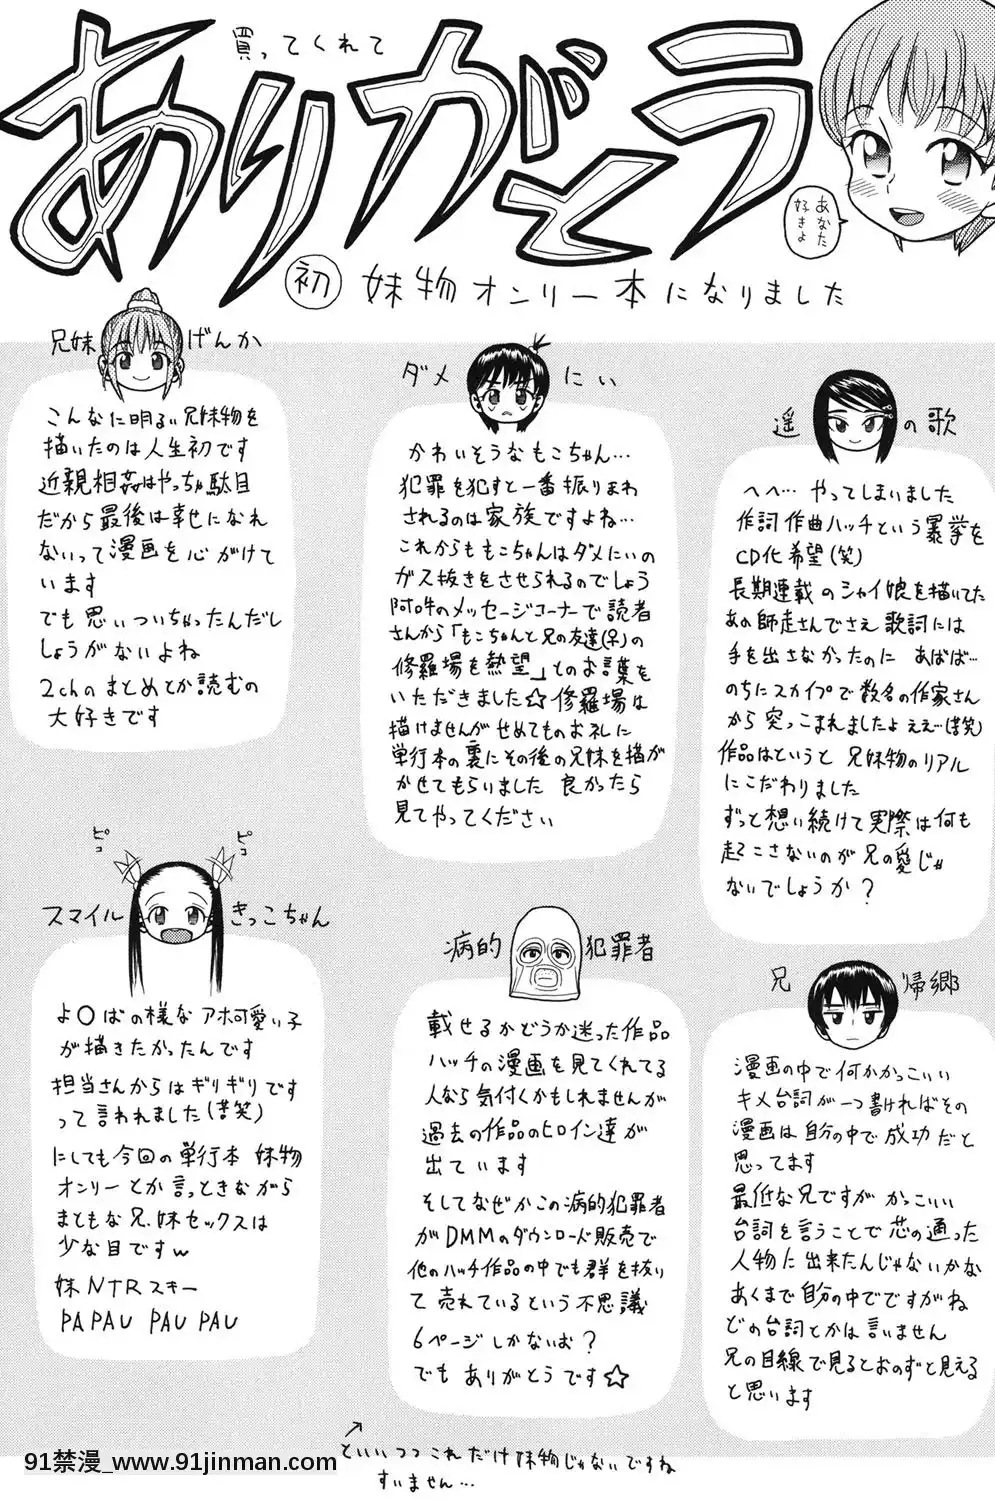 買ってくれて
ありがとう
あなた
好きよ
初 妹物オンリー本になりました
兄妹げんか
こんなに明るい兄妹物を
描いたのは人生初です
近親相姦はやっちゃ駄目
だから最後は幸せになれ
ないって漫画を心がけて
います
でも思いついちゃったんだし
しょうがないよね
2chのまとめとか読むの
大好きです
ダメにぃ
かわいそうなもこちゃん…
犯罪を犯すと一番振りまわ
されるのは家族ですよね…
これからももこちゃんはダメにぃの
ガス抜きをさせられるのでしょう
阿吽のメッセージコーナーで読者
さんから「もこちゃんと兄の友達(♀)の
修羅場を熱望」とのお言葉を
いただきました☆修羅場は
描けませんがせめてものお礼に
単行本の裏にその後の兄妹を描が
かせてもらいました 良かったら
見てやってください
遥の歌
へへ… やってしまいました
作詞作曲ハッチという暴挙を
CD化希望(笑)
長期連載のシャイ娘を描いてた
あの師走さんでさえ歌詞には
手を出さなかったのに あばば…
のちにスカイプで数名の作家さん
から突っこまれましたよ ええ…(苦笑)
作品はというと 兄妹物のリアル
にこだわりました
ずっと想い続けて実際は何も
起こさないのが兄の愛じゃ
ないでしょうか?
ピコ
ピコ
スマイルきっこちゃん
よ〇ばの様なアホ可愛い子
が描きたかったんです
担当さんからはギリギリです
って言われました(苦笑)
にしても今回の単行本 妹物
オンリーとか言っときながら
まともな兄.妹セックスは
少な目ですw
妹NTRスキー
PAPAU PAU PAU
病的犯罪者
載せるかどうか迷った作品
ハッチの漫画を見てくれてる
人なら気付くかもしれませんが
過去の作品のヒロイン達が
出ています
そしてなぜかこの病的犯罪者
がDMMのダウンロード販売で
他のハッチ作品の中でも群を抜い
て売れているという不思議
6ページしかないお?
でもありがとうです☆
兄帰郷
漫画の中で何かかっこいい
キメ台詞が一つ書ければその
漫画は自分の中で成功だと
思ってます
最低な兄ですが かっこいい
台詞を言うことで芯の通った
人物に出来たんじゃないかな
あくまで自分の中でですがね
どの台詞とかは言いません
兄の目線で見るとおのずと見える
と思います
といいつつこれだけ妹物じゃないですね
すいません…
91禁漫_www.91jinman.com